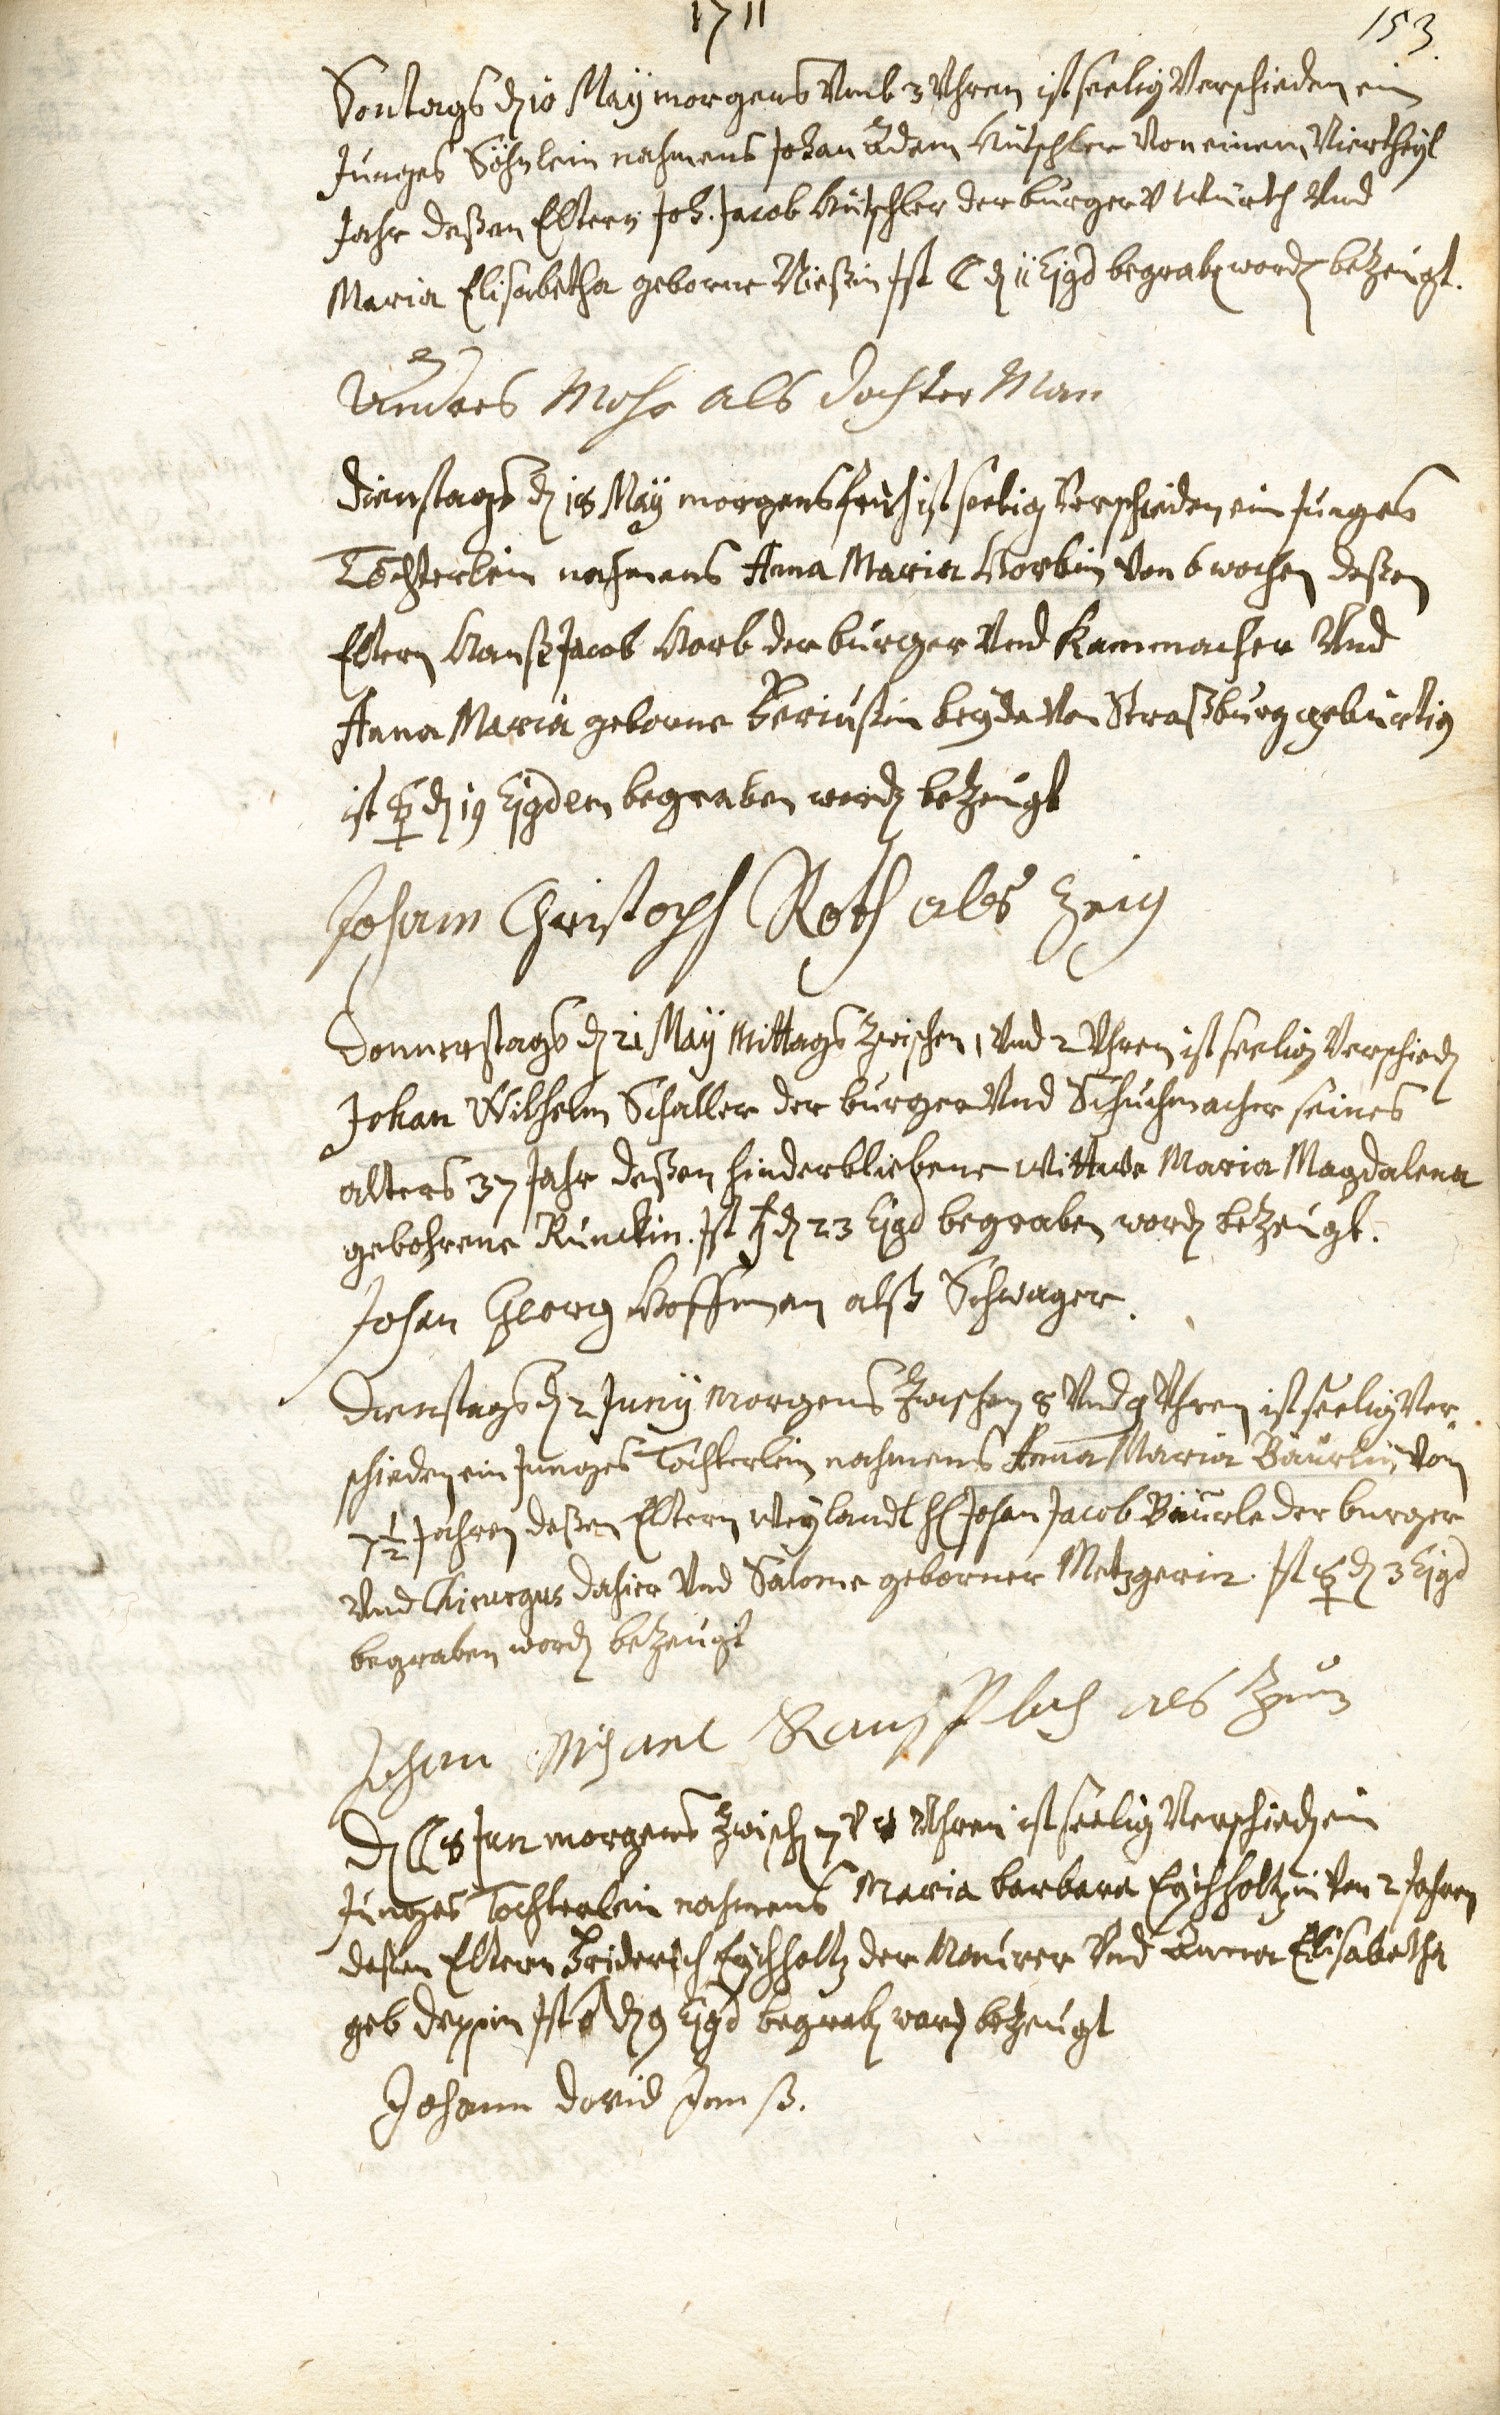 1711
153.
Sontags dẽ 10 Maÿ morgens Vmb 3 Vhren ist seelig Verschieden ein
Junges Söhnlein nahmens Johan Adam Hütschler Von einem Viertheyl
Jahr deßen Eltern Joh. Jacob Hütschler der burger V Würth Vnd
Maria Elisabetha geborne Nießin Ist ☾ dẽ 11 Ejgd begrabẽ wordẽ bezeugt.
Andres Mohr als dochter Man
Dienstags dẽ 18 Maÿ morgens früh ist seelig Verschieden ein Junges
Töchterlein nahmens Anna Maria Korbin Von 6 wochen deßen
Eltern Hanß Jacob Korb der burger Vnd Kammacher Vnd
Anna Maria geborne beyde Von Straßburg gebürtig
ist ☿ dẽ 19 Ejgdem begraben wordẽ bezeugt
Johann Christoph Roth als Zeig
Donnerstags dẽ 21 Maÿ Mittags Zwischen 1 Vnd 2 Vhren ist seelig Verschiedẽ
Johan Wilhelm Schaller der burger Vnd Schuchmacher seines
alters 37 Jahr deßen hinderbliebene Wittwe Maria Magdalena
gebohrene Runckin. Ist ♄ dẽ 23 Ejgd begraben wordẽ bezeugt.
Johan Georg Hoffman alß Schwager.
Dienstags dẽ 2 Junÿ Morgens Zwischen 8 Vnd 9 Vhren ist seelig Ver-
schieden ein Junges Tochterlein nahmens Anna Maria Bäurlin Von
7½ Jahren deßen Eltern Weylandt H Johan Jacob Bäurle der burger
Vnd Chirurgus dahier Vnd Salome geborner Metzgerin. Ist ☿ dẽ 3 Ejgd
begraben wordẽ bezeugt
Johan Michael als
Dẽ ☾ 8 Jun morgens Zwischẽ 7 V 8 Vhren ist seelig Verschiedẽ ein
Junges Tochterlein nahmens Maria barbara Eychholtzin Von 2 Jahren
deßen Eltern Friderich Eychholtz der Maurer Vnd Anna Elisabetha
geb Deppin Ist ♂ dẽ 9 Ejgd begrabẽ wordẽ bezeugt
Johann David